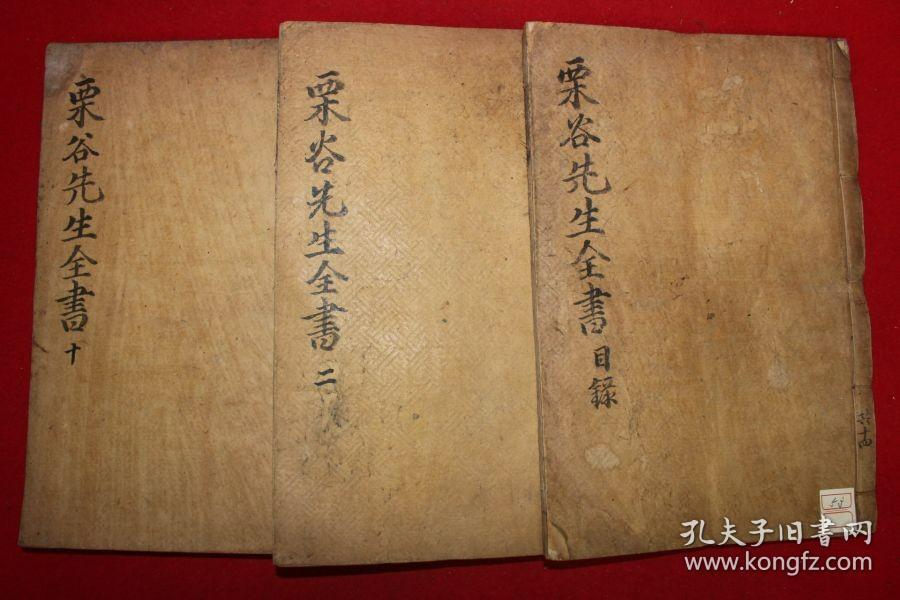 栗谷先生全書 目錄
共十四
栗谷先生全書 二
栗谷先生全書 十
孔夫子旧书网
www.kongfz.com